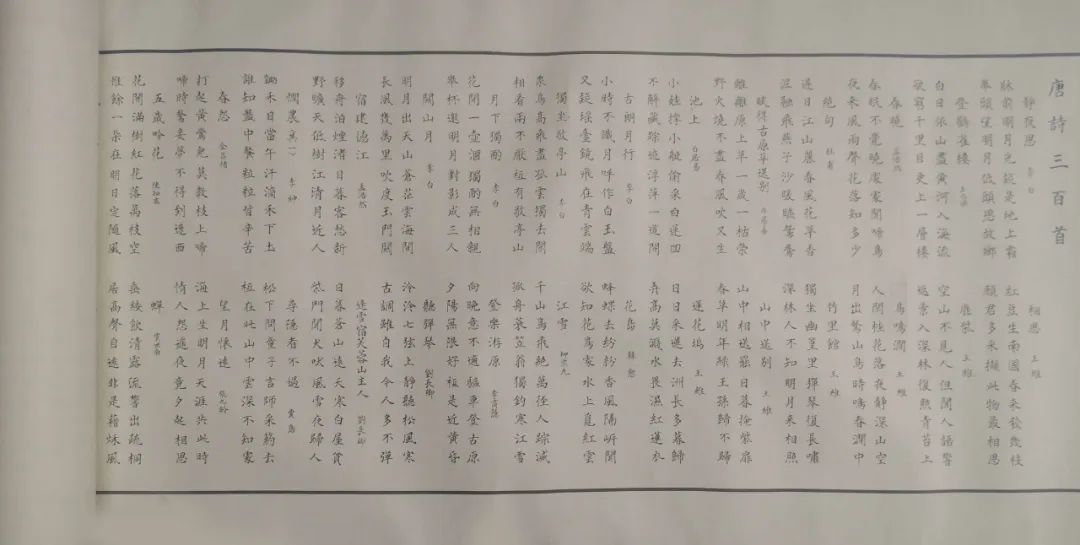 唐詩三百首
靜夜思 李白
牀前明月光疑是地上霜
舉頭望明月低頭思故鄉
登鸛雀樓 王之渙
白日依山盡黃河入海流
欲窮千里目更上一層樓
春曉 孟浩然
春眠不覺曉處處聞啼鳥
夜來風雨聲花落知多少
絕句 杜甫
遲日江山麗春風花草香
泥融飛燕子沙暖睡鴛鴦
賦得古原草送別 白居易
離離原上草一歲一枯榮
野火燒不盡春風吹又生
池上 白居易
小娃撐小艇偷采白蓮回
不解藏蹤迹浮萍一道開
古朗月行 李白
小時不識月呼作白玉盤
又疑瑤臺鏡飛在青雲端
獨坐敬亭山 李白
衆鳥高飛盡孤雲獨去閒
相看兩不厭祗有敬亭山
月下獨酌 李白
花間一壺酒獨酌無相親
舉杯邀明月對影成三人
關山月 李白
明月出天山蒼茫雲海間
長風幾萬里吹度玉門關
宿建德江 孟浩然
移舟泊煙渚日暮客愁新
野曠天低樹江清月近人
憫農其(一) 李紳
鋤禾日當午汗滴禾下土
誰知盤中餐粒粒皆辛苦
春怨 金昌緒
打起黃鶯兒莫教枝上啼
啼時驚妾夢不得到遼西
五歲咏花 陳知玄
花開滿樹紅花落萬枝空
惟餘一朵在明日定隨風
相思 王維
紅豆生南國春來發幾枝
願君多采擷此物最相思
鹿柴 王維
空山不見人但聞人語響
返景入深林復照青苔上
鳥鳴澗 王維
人閒桂花落夜靜深山空
月出驚山鳥時鳴春澗中
竹里館 王維
獨坐幽篁里彈琴復長嘯
深林人不知明月來相照
山中送別 王維
山中相送罷日暮掩柴扉
春草明年綠王孫歸不歸
蓮花塢 王維
日日采蓮去洲長多暮歸
弄篙莫濺水畏濕紅蓮衣
花島 韓愈
蜂蝶去紛紛香風隔岸聞
欲知花島處水上覓紅雲
江雪 柳宗元
千山鳥飛絕萬徑人蹤滅
孤舟蓑笠翁獨釣寒江雪
登樂游原 李商隱
向晚意不適驅車登古原
夕陽無限好祗是近黃昏
聽彈琴 劉長卿
泠泠七弦上靜聽松風寒
古調雖自我今人多不彈
逢雪宿芙蓉山主人 劉長卿
日暮蒼山遠天寒白屋貧
柴門聞犬吠風雪夜歸人
尋隱者不遇 賈島
松下問童子言師采藥去
祗在此山中雲深不知處
望月懷遠 張九齡
海上生明月天涯共此時
情人怨遙夜竟夕起相思
蟬 虞世南
垂緌飲清露流響出疏桐
居高聲自遠非是藉秋風